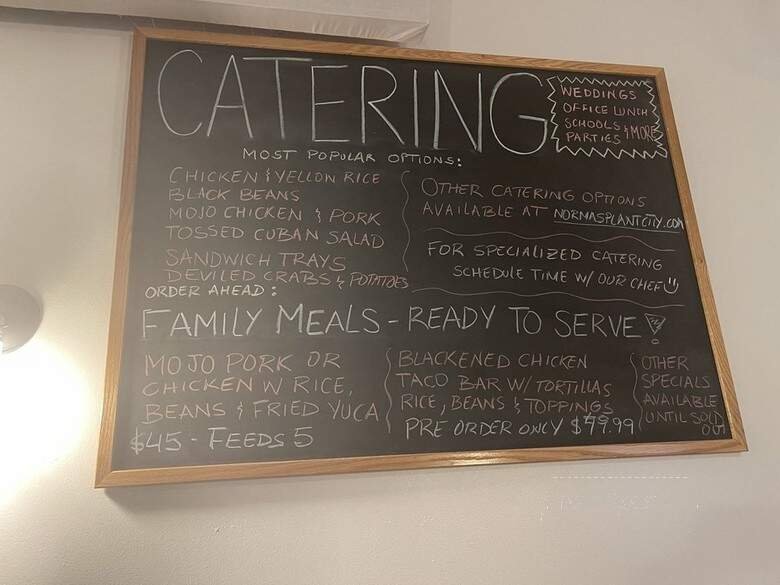 CATERING
WEDDINGS
OFFICE LUNCH
SCHOOLS
PARTIES & MORE
MOST POPULAR OPTIONS:
CHICKEN & YELLOW RICE
BLACK BEANS
MOJO CHICKEN & PORK
TOSSED CUBAN SALAD
SANDWICH TRAYS
DEVILED CRABS & POTATOES
OTHER CATERING OPTIONS
AVAILABLE AT NORMASPLANTCITY.COM
FOR SPECIALIZED CATERING
SCHEDULE TIME W/ OUR CHEF
ORDER AHEAD:
FAMILY MEALS - READY TO SERVE!
MOJO PORK OR
CHICKEN W RICE,
BEANS & FRIED YUCA
$45 - FEEDS 5
BLACKENED CHICKEN
TACO BAR W/ TORTILLAS
RICE, BEANS & TOPPINGS
PRE ORDER ONLY $79.99
OTHER
SPECIALS
AVAILABLE
UNTIL SOLD
OUT